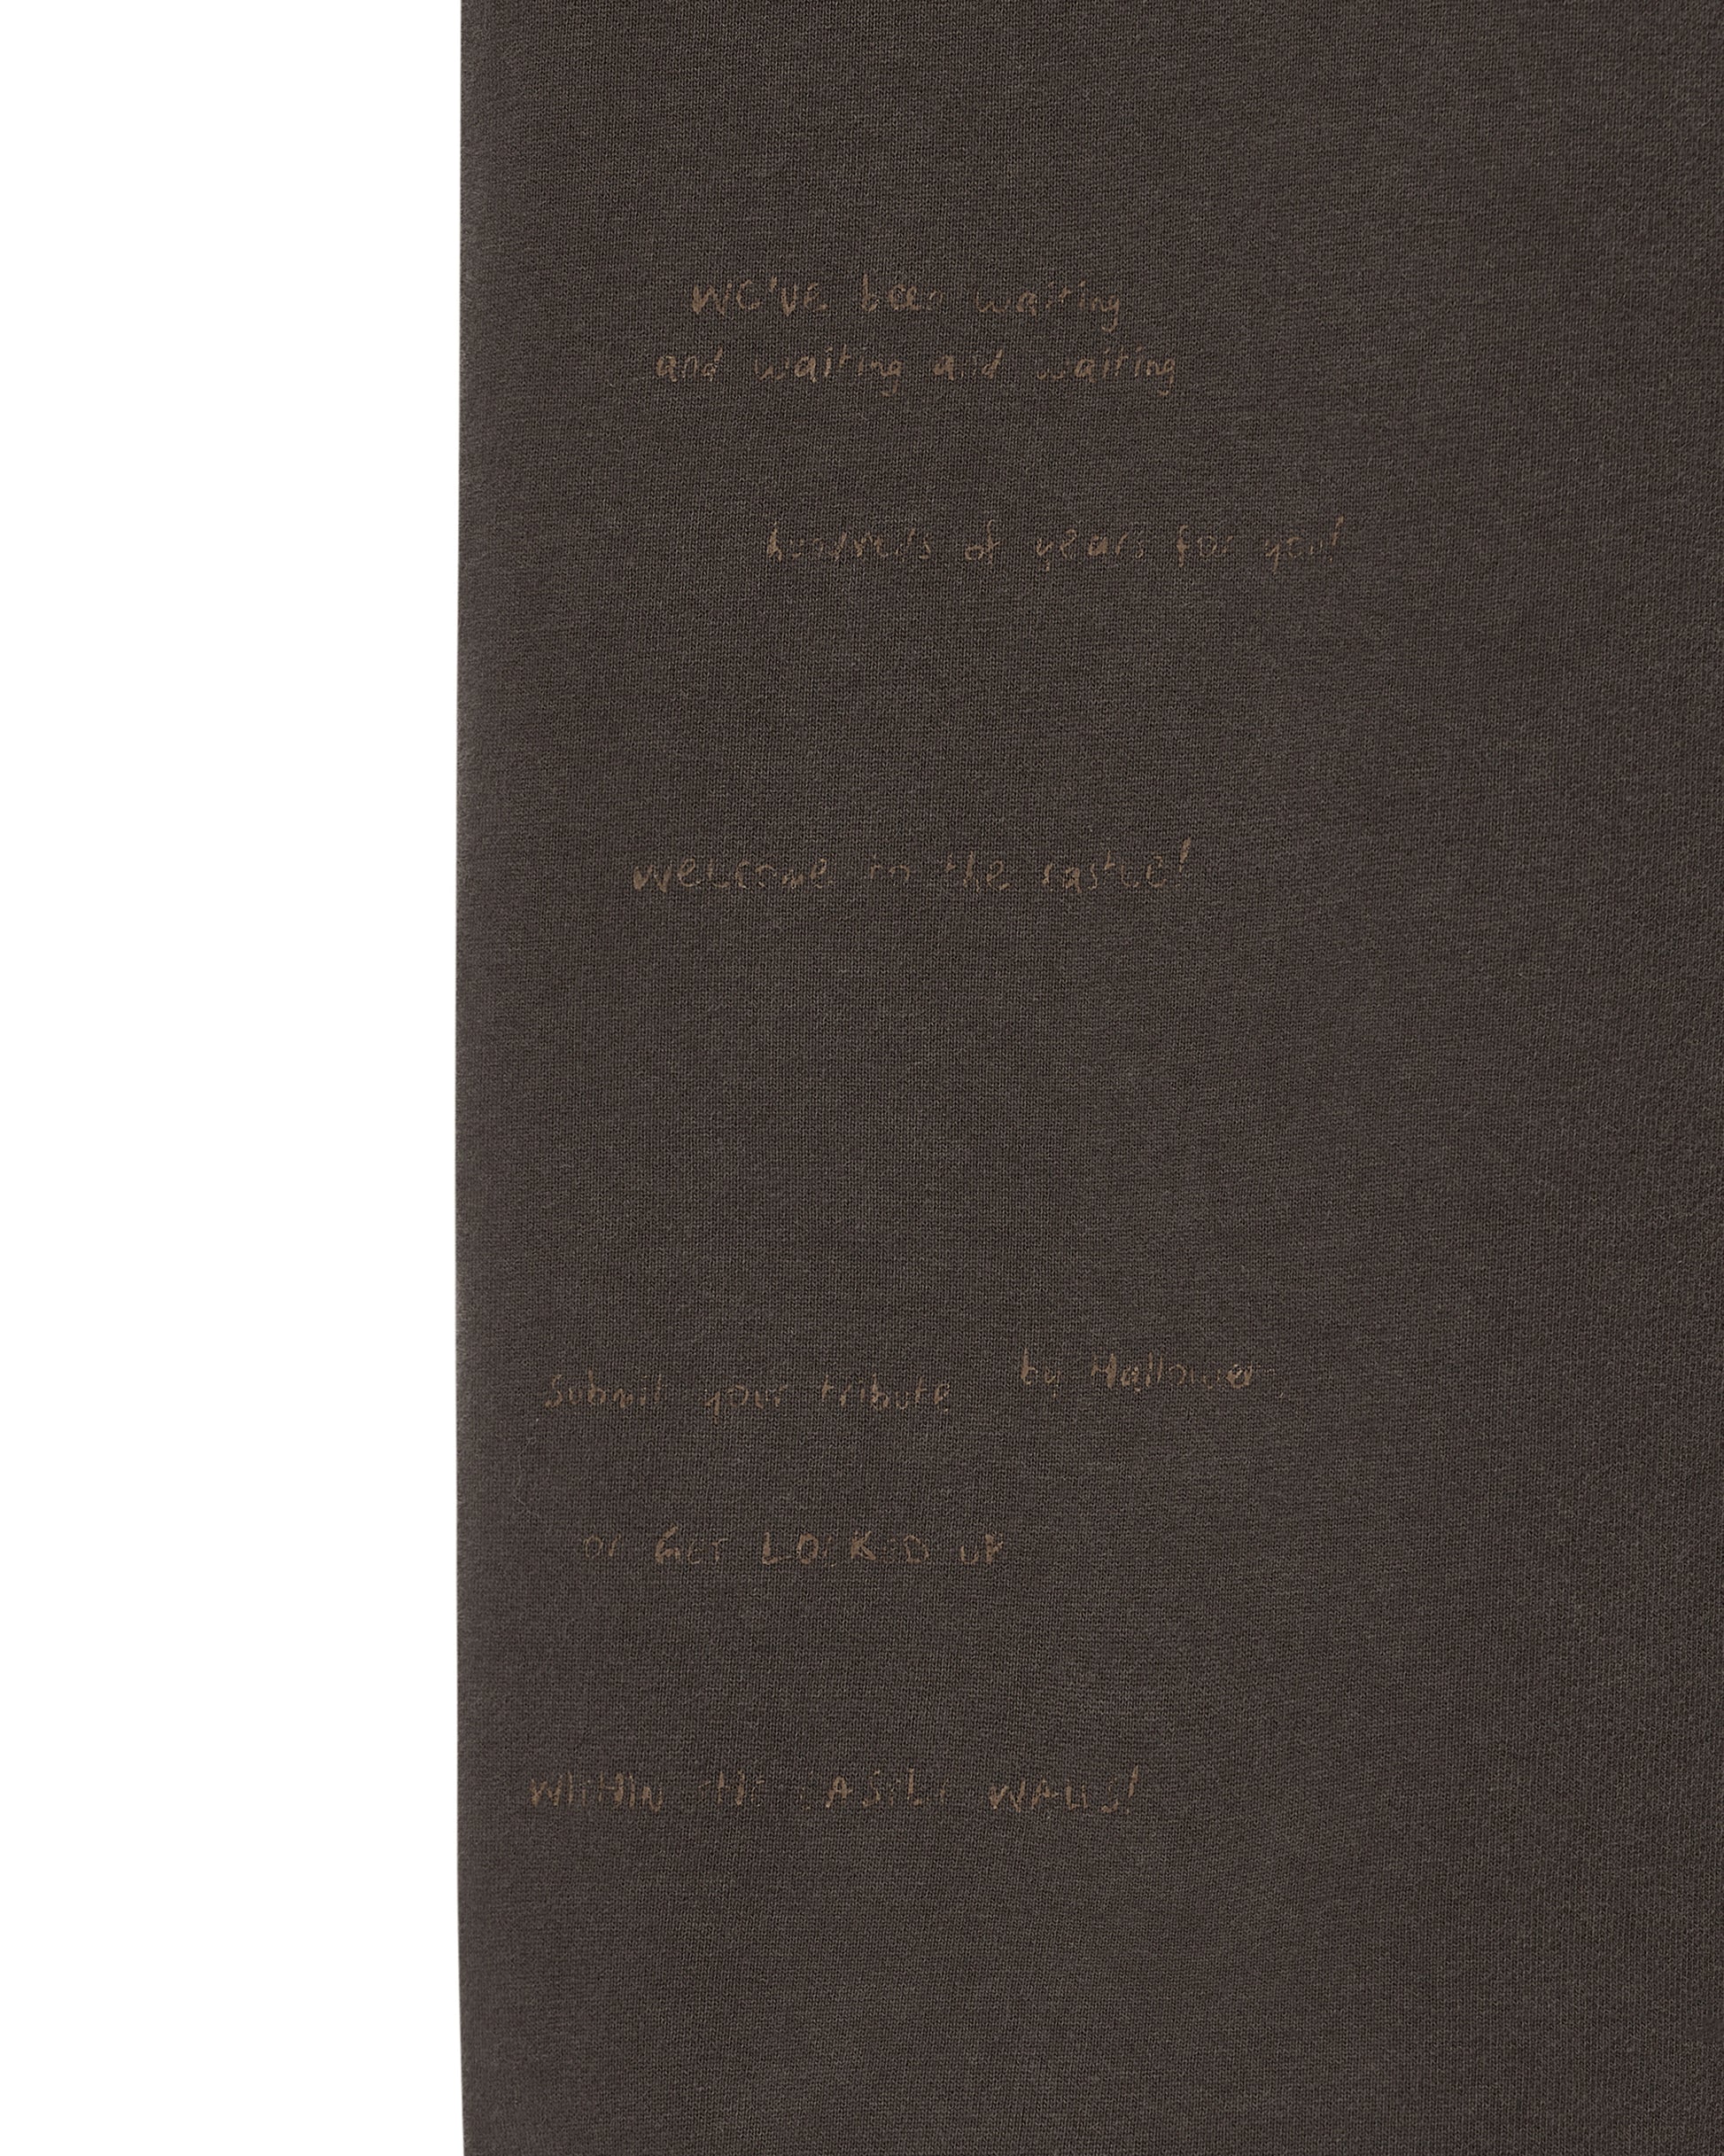 we've been waiting
and waiting and waiting
hundreds of years for you!
welcome to the castle!
Submit your tribute by Halloween
or GET LOCKED UP
WITHIN THE CASTLE WALLS!